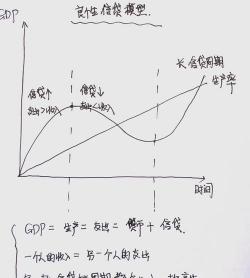 GDP
良性信贷模型.
长信贷周期
生产率
信贷↑ 信贷↓
支出>收入 支出<收入
时间
GDP = 生产 = 支出 = 货币 + 信贷.
一个人的收入 = 另一个人的支出